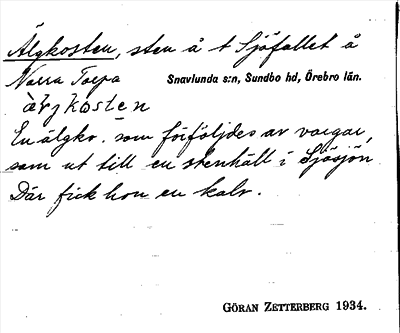 Älgkosten, sten å t Sjöfallet å
Norra Torpa Snavlunda s:n, Sundbo hd, Örebro län.
àrjkosten
En älgko. som förföljdes av vargar,
sam ut till en stenhäll i Sjösjön
Där fick hon en kalv.
GÖRAN ZETTERBERG 1934.